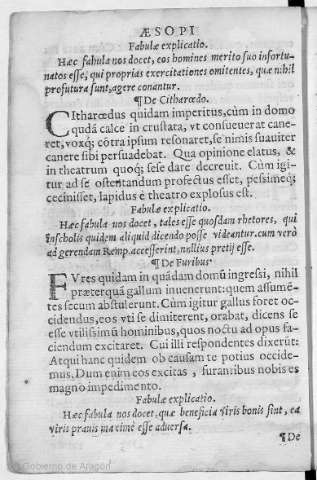 ÆSOPI
Fabulæ explicatio.
Hæc fabula nos docet, eos homines merito suo infortu-
natos esse, qui proprias exercitationes omitentes, quæ nihil
profutura sunt, agere conantur.
¶De Citharœdo.
CItharœdus quidam imperitus, cùm in domo
qudã calce in crustata, vt consueuerat cane-
ret, voxq; cõtra ipsum resonaret, se nimis suauiter
canere sibi persuadebat. Qua opinione elatus, &
in theatrum quoq; sese dare decreuit. Cùm igi-
tur ad se ostentandum profectus esset, pessimeq;
cecinisset, lapidus è theatro explosus est.
Fabulæ explicatio.
Hæc fabula nos docet, tales esse quosdam rhetores, qui
in scholis quidem aliquid dicendo posse videantur. cum verò
ad gerendam Remp. accesserint, nullius pretij esse.
¶De Furibus.
FVres quidam in quádam domũ ingressi, nihil
præterquã gallum inuenerunt: quem assumē-
tes secum abstulerunt. Cùm igitur gallus foret oc-
cidendus, eos vti se dimiterent, orabat, dicens se
esse vtilissimũ hominibus, quos noctu ad opus fa-
ciendum excitaret. Cui illi respondentes dixerũt:
Atqui hanc quidem ob causam te potius occide-
mus, Dum enim eos excitas, furantibus nobis es
magno impedimento.
Fabulæ explicatio.
Hæc fabula nos docet, quæ beneficia viris bonis sint, ea
viris prauis maximè esse aduersa.
¶De
© Gobierno de Aragón